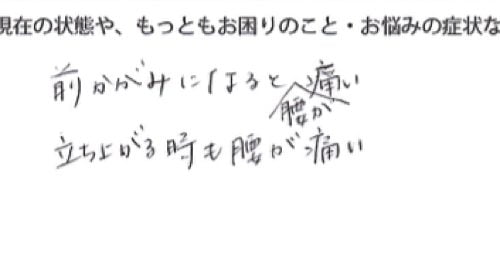 現在の状態や、もっともお困りのこと・お悩みの症状な
前かがみになると腰が痛い
立ち上がる時も腰が痛い